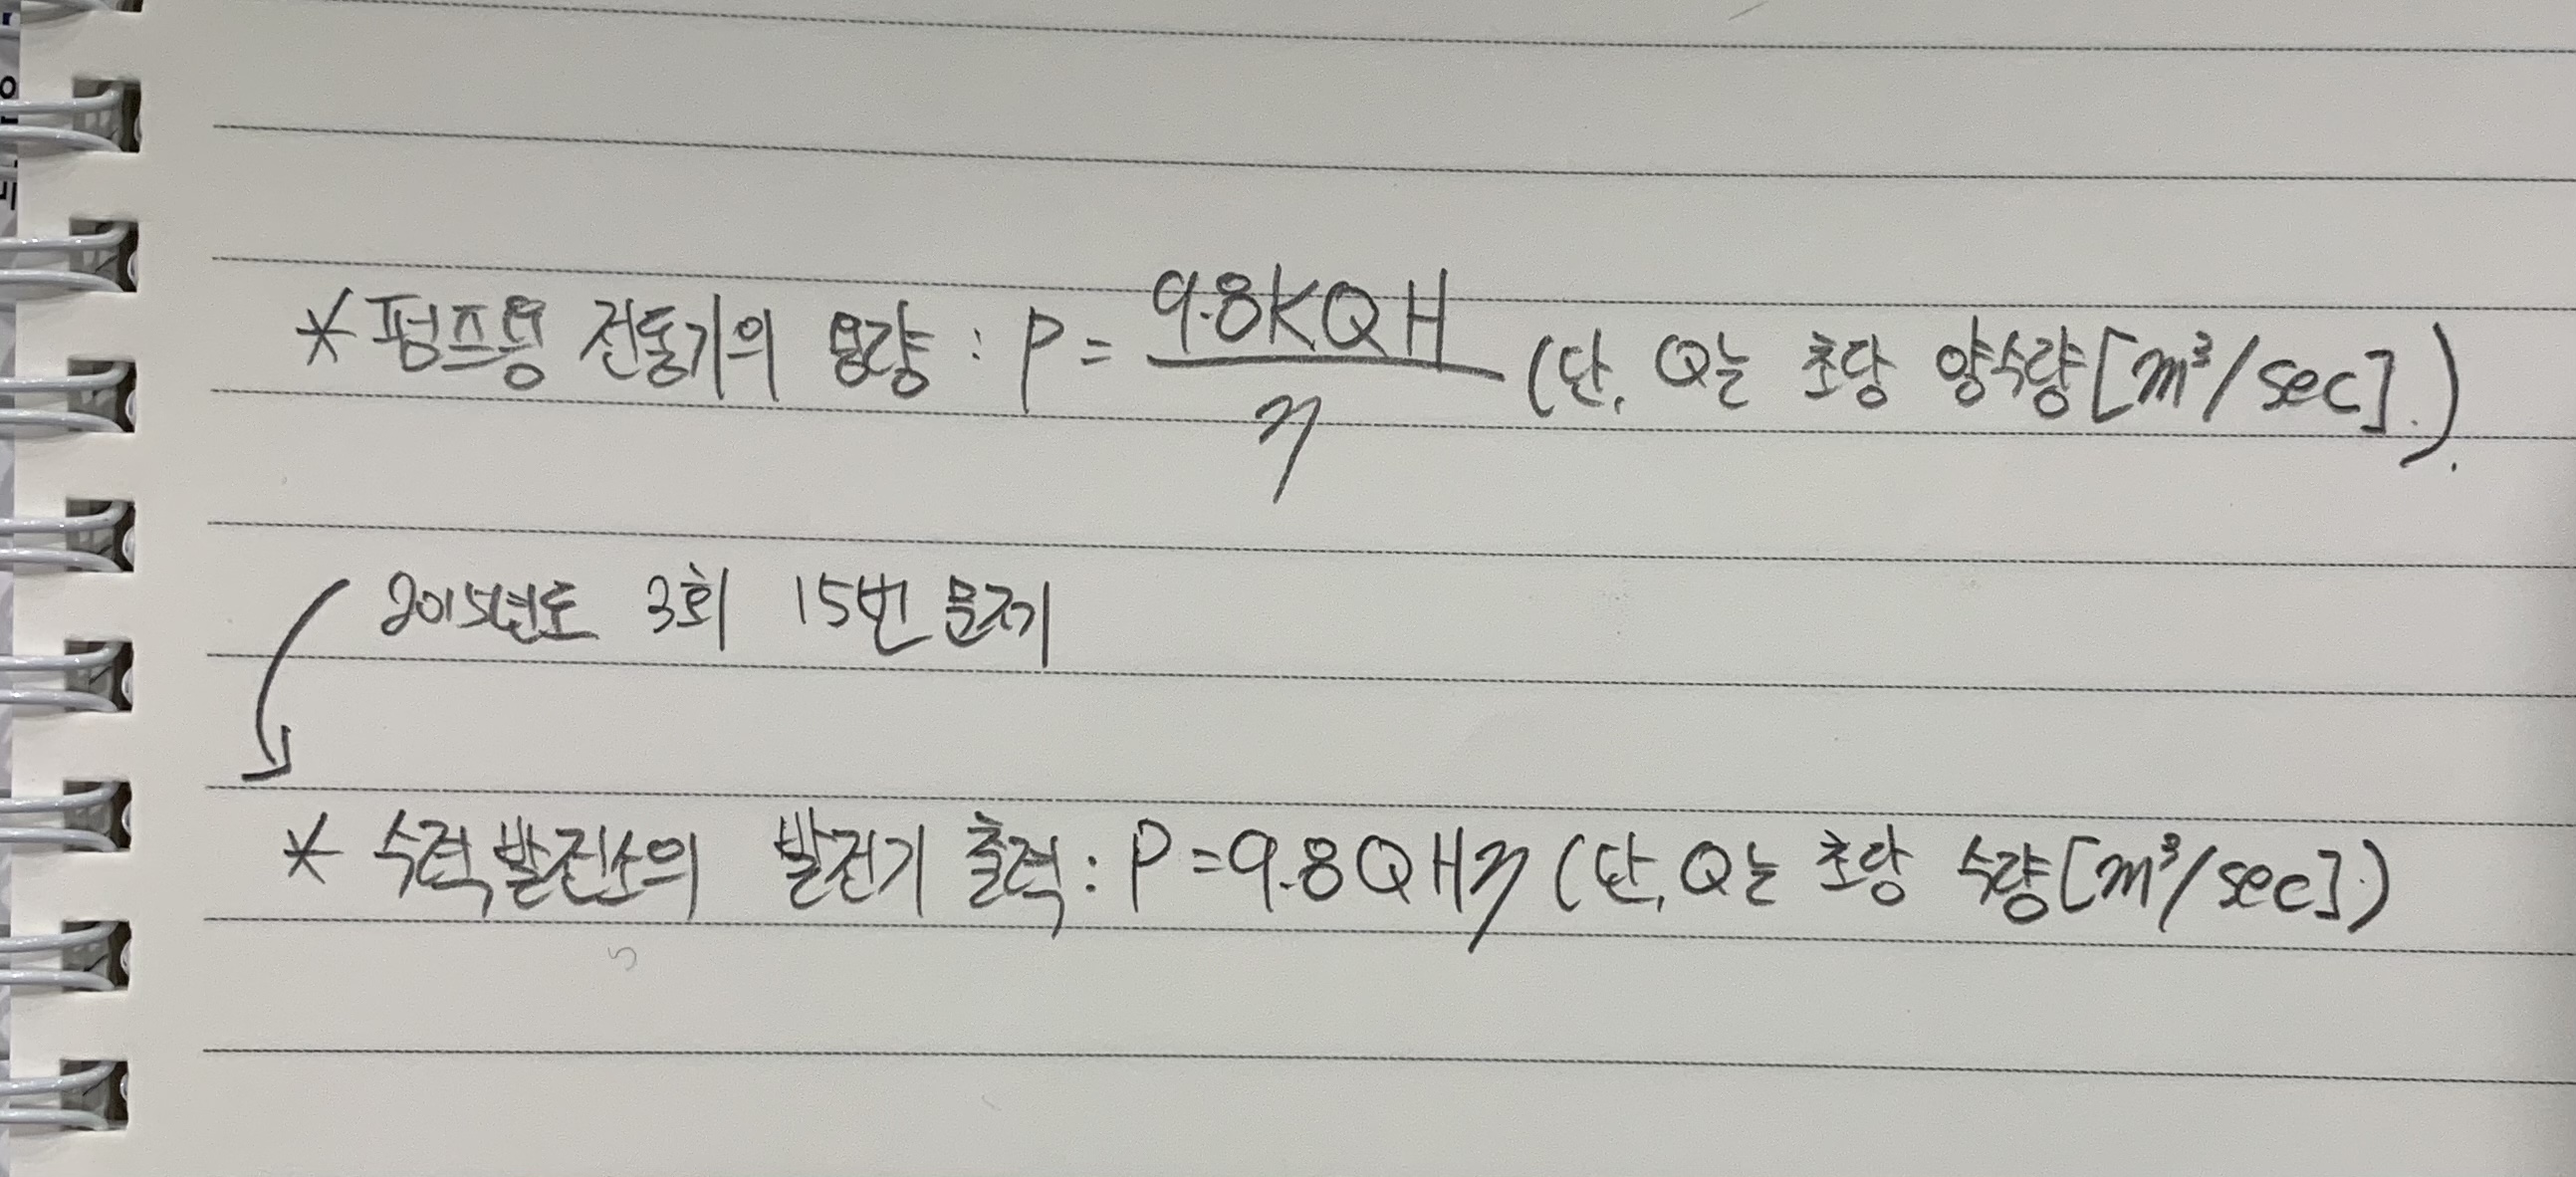 * 펌프용 전동기의 용량 : P = 9.8KQH / η (단, Q는 초당 양수량[m³/sec].).
2015년도 3회 15번 문제
* 수력발전소의 발전기 출력 : P = 9.8QHη (단, Q는 초당 수량[m³/sec].)